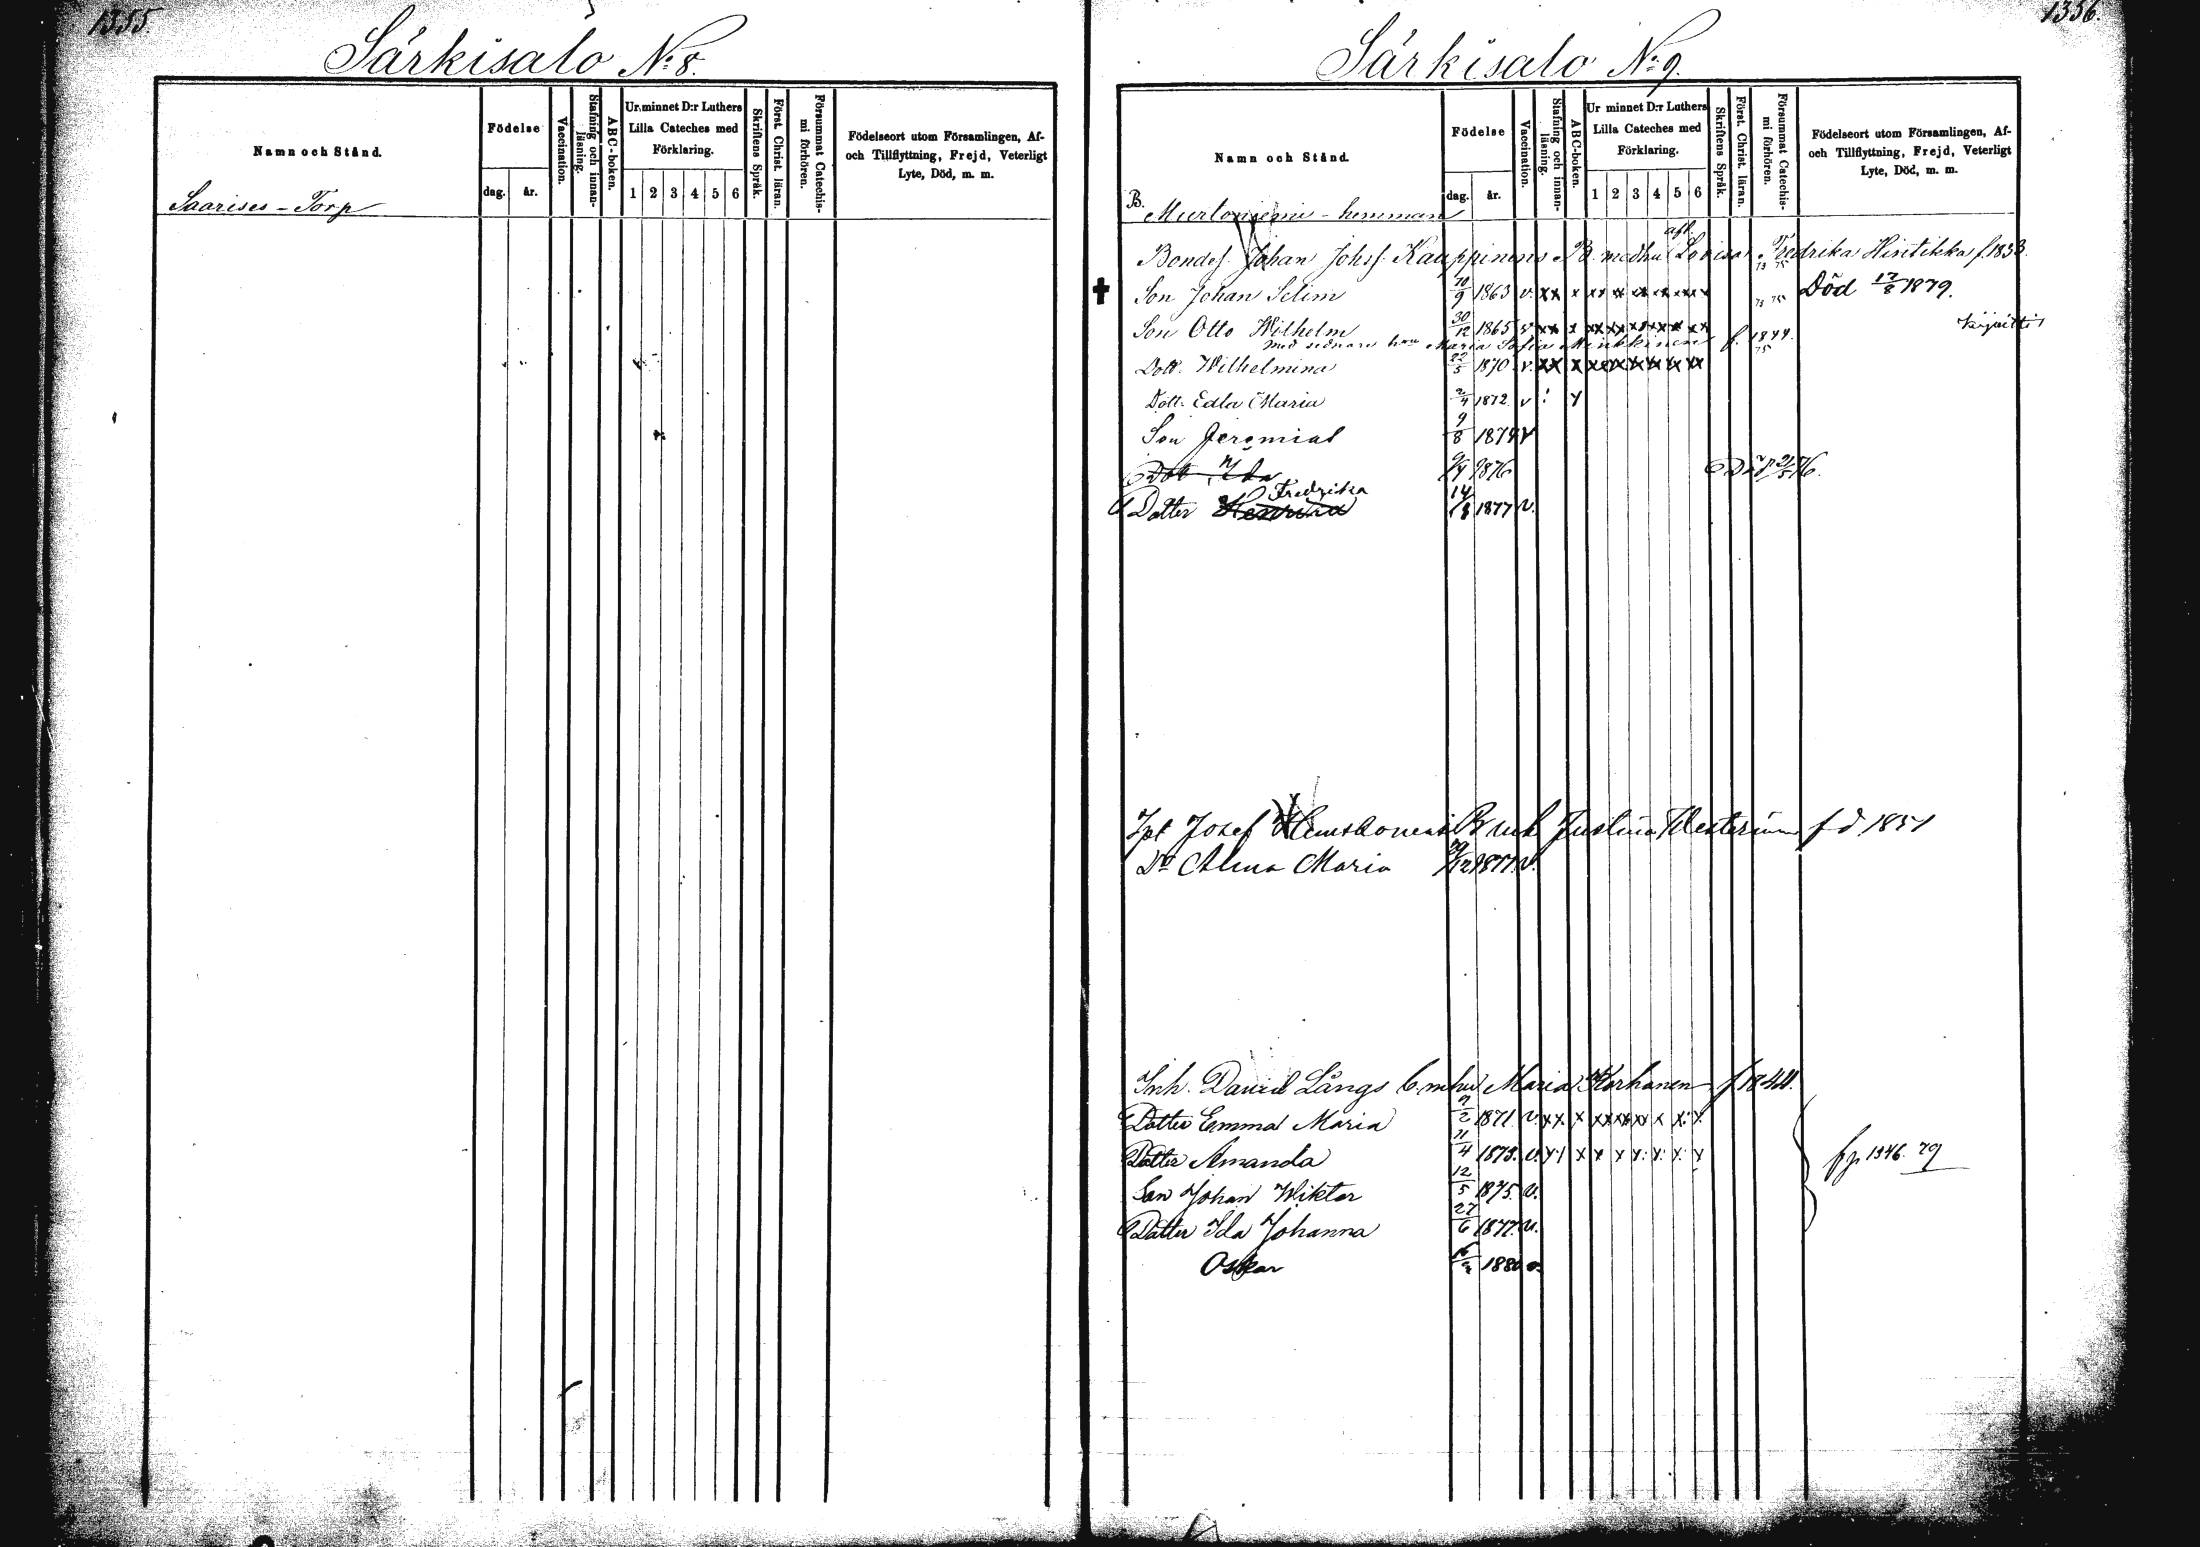 1355.
Särkisalo No 8.
Namn och Stånd.
Födelse
dag.
år.
Vaccination.
Stafning och innan-
läsning.
ABC-boken.
Ur minnet D:r Luthers
Lilla Cateches med
Förklaring.
1 2 3 4 5 6
Skriftens Språk.
Först. Christ. läran.
Försummat Catechis-
mi förhören.
Födelseort utom Församlingen, Af-
och Tillflyttning, Frejd, Veterligt
Lyte, Död, m. m.
Saarises - Torp
1356.
Särkisalo No 9.
Namn och Stånd.
Födelse
dag.
år.
Vaccination.
Stafning och innan-
läsning.
ABC-boken.
Ur minnet D:r Luthers
Lilla Cateches med
Förklaring.
1 2 3 4 5 6
Skriftens Språk.
Först. Christ. läran.
Försummat Catechis-
mi förhören.
Födelseort utom Församlingen, Af-
och Tillflyttning, Frejd, Veterligt
Lyte, Död, m. m.
B. Murtoniemi - hemman
Bondes. Johan Johss. Kauppinens B. medhu afl. Lovisa Fredrika Hintikka f. 1833.
Son Johan Selim 10/9 1863 v. xx x xx xx xx xx xx xx 73 75 Död 17/8 1879.
Son Otto Wilhelm 30/12 1865 v xx x xx xx xx xx xx xx
Med sednare hru Maria Sofia Minkkinen f. 1844.
Dott. Wilhelmina 22/5 1870 v. xx x xx xx xx xx xx xx 75
Dott. Edla Maria 2/4 1872. v
Son Jeremias 9/8 1874 v
Dott. Ida 9/4 1876 Död 21/5 76.
Dotter Henrika Fredrika 14/8 1877 v.
Josef B mh Justina f d 1851
Dr Alma Maria 29/12 1877. v.
Inh. David Långs b. mhu Maria Korhonen f 1844.
Dotter Emma Maria 9/2 1871 v. xx x xx xx xx x x x
Dotter Amanda 11/4 1873. v. x x x x x x x x
Son Johan Wiktor 12/5 1875. v.
Dotter Ida Johanna 27/6 1877. v.
fp. 1346. 79
Oskar 1880 v.